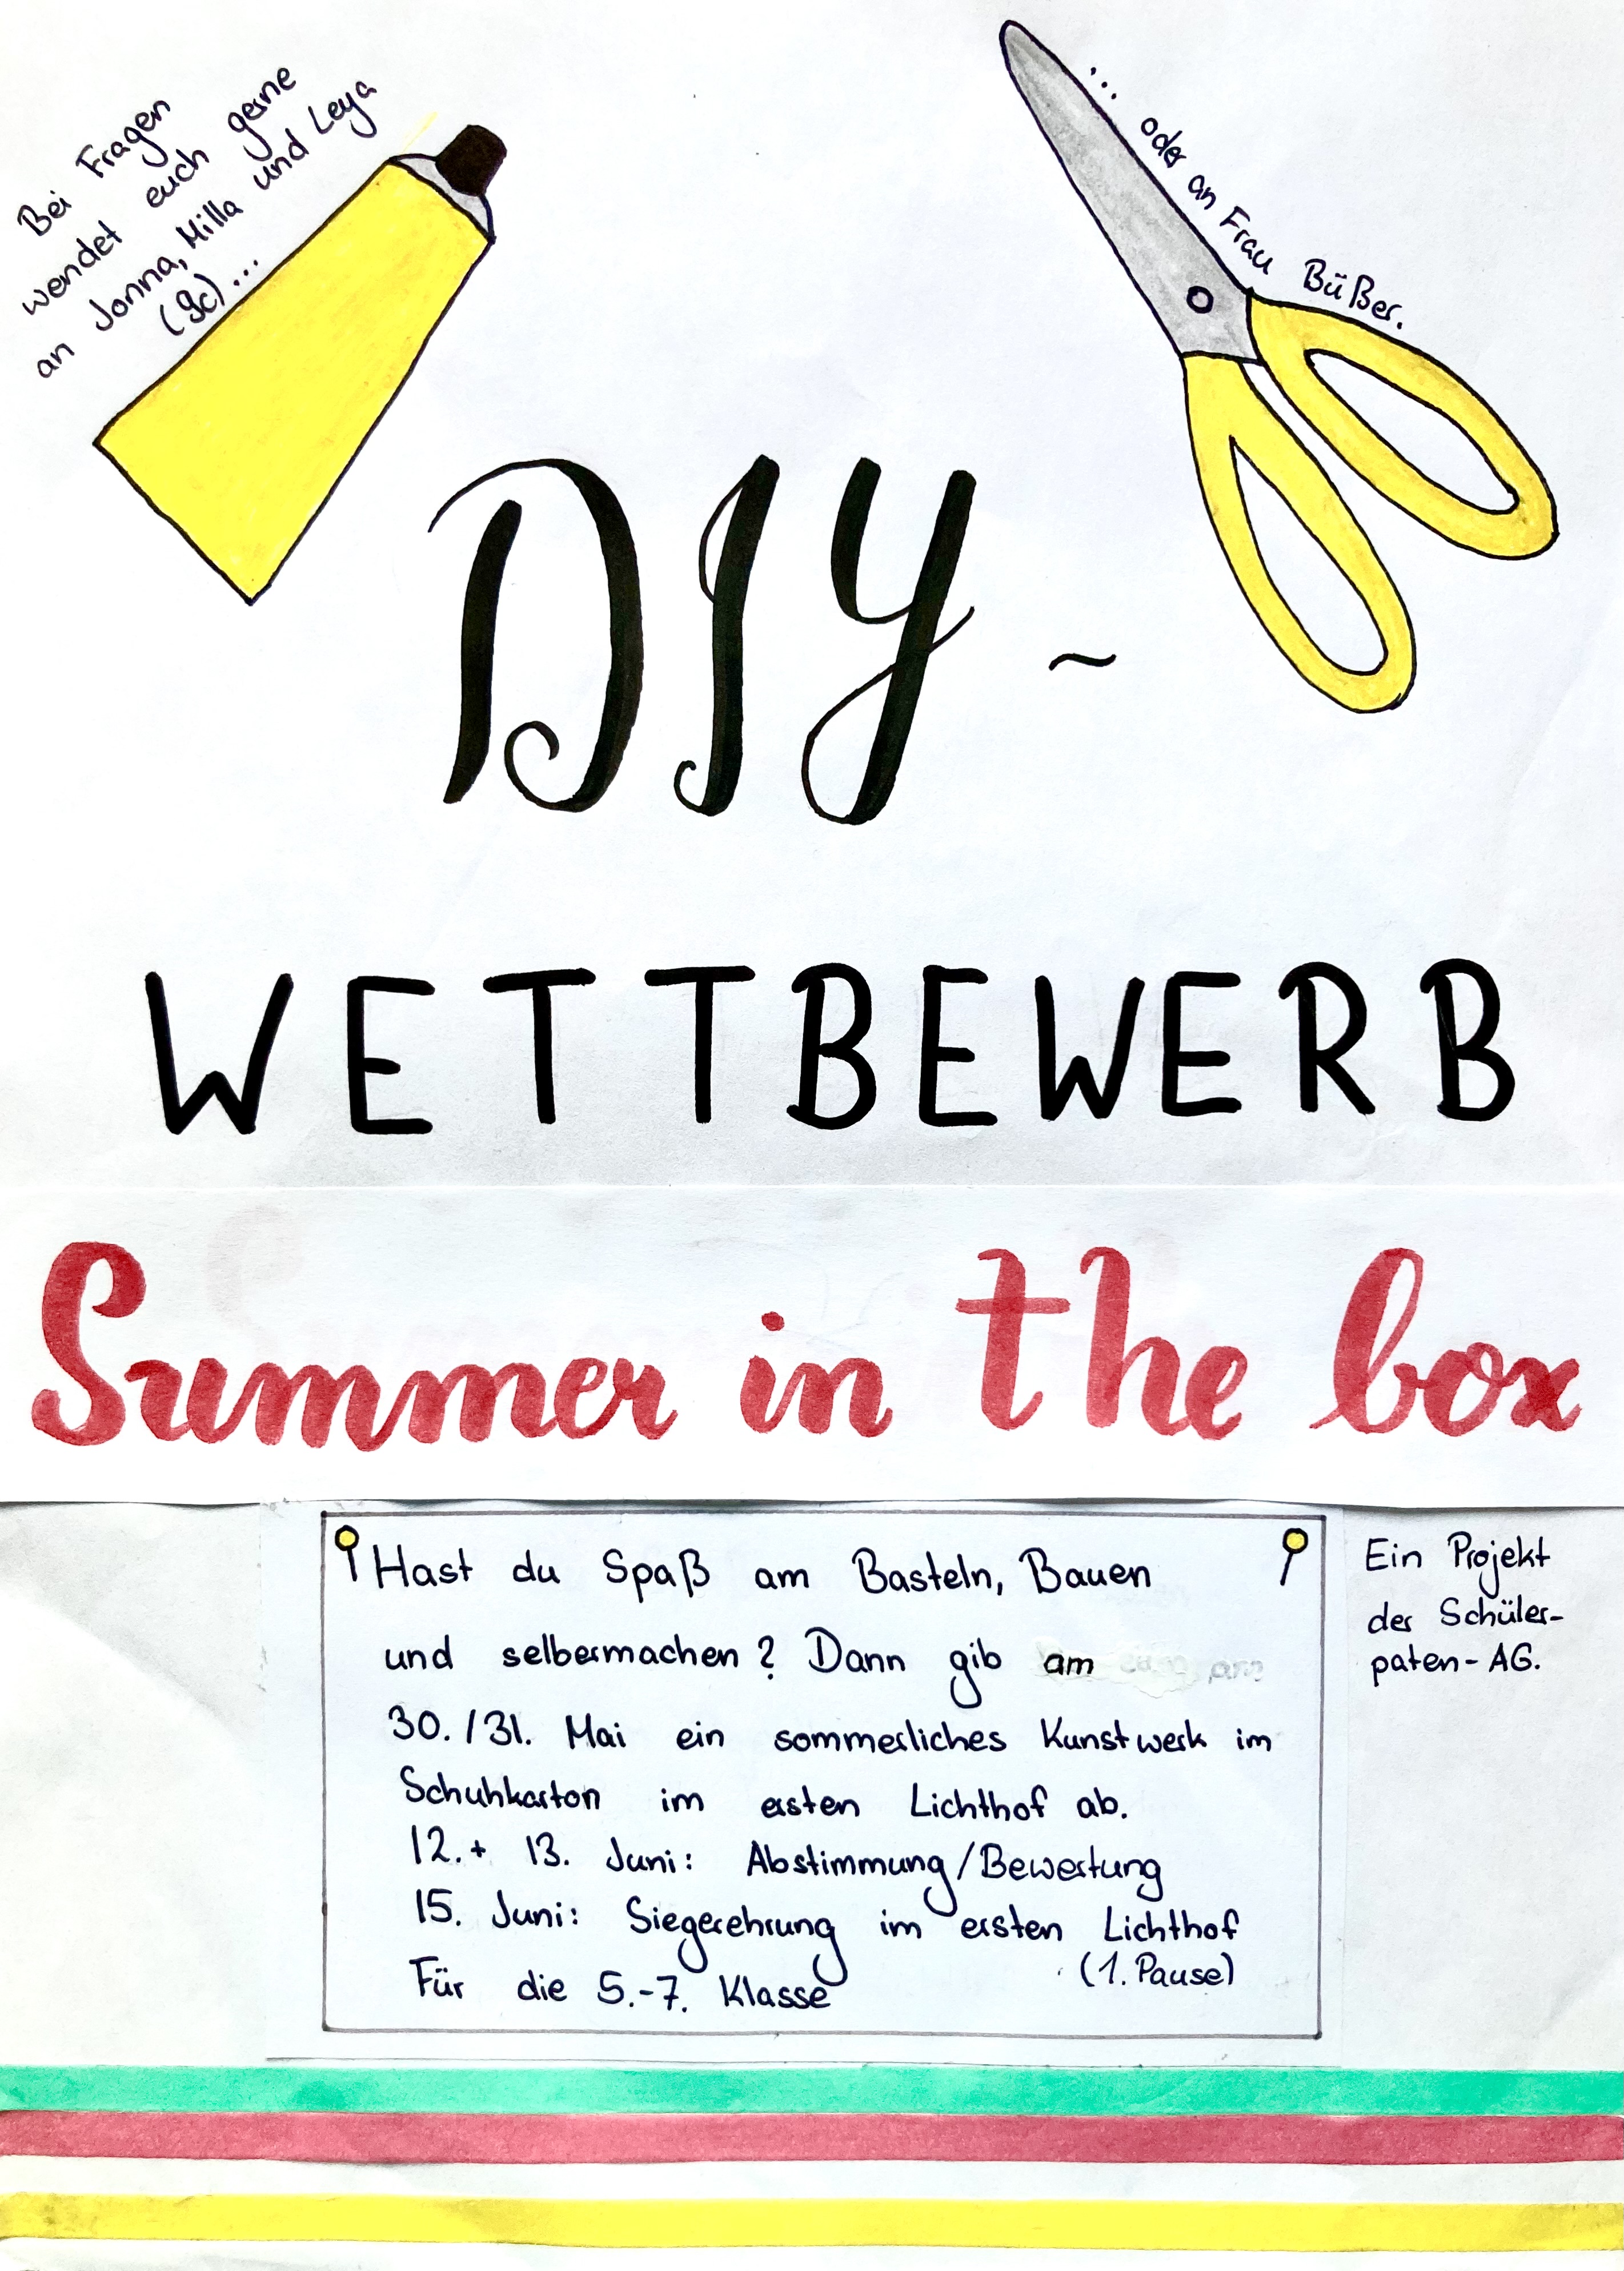 Bei Fragen
wendet euch gerne
an Jonna, Milla und Leya
(9c)...
... oder an Frau Büßer.
DIY-
WETTBEWERB
Summer in the box
Hast du Spaß am Basteln, Bauen
und selbermachen? Dann gib am
30./31. Mai ein sommerliches Kunstwerk im
Schuhkarton im ersten Lichthof ab.
12.+ 13. Juni: Abstimmung/Bewertung
15. Juni: Siegerehrung im ersten Lichthof
(1. Pause)
Für die 5.-7. Klasse
Ein Projekt
der Schüler-
paten-AG.